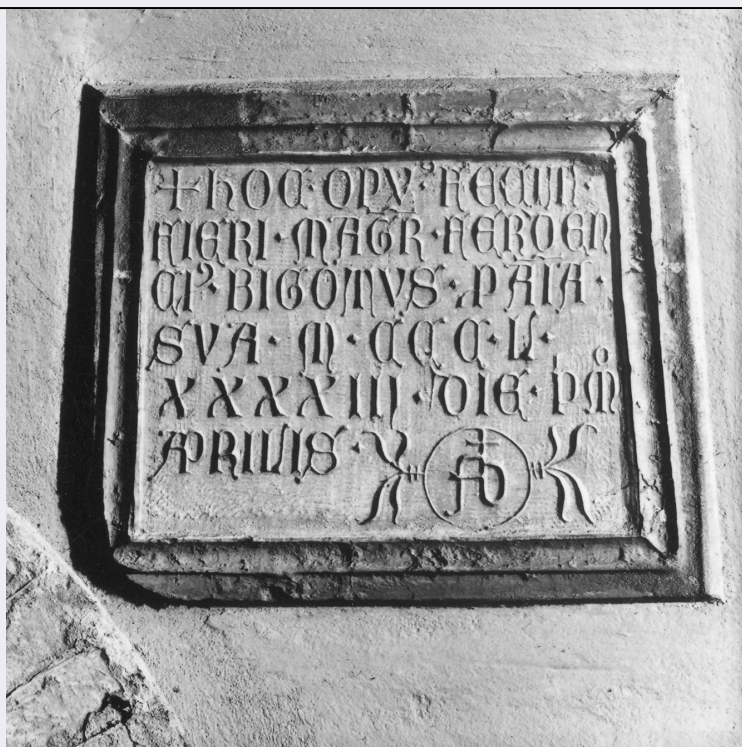 + HOC · OPVꝰ · FECIT ·
FIERI · MAGR · FERDEN
CIꝰ · BIGOTVS · P AIA ·
SVA · M · CCC C · L ·
XXXXIII · DIE · PͦM
APRILIS ·